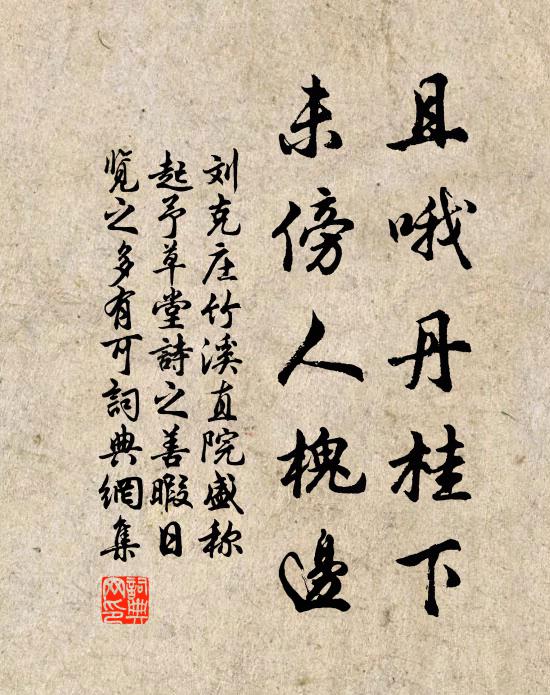 且哦丹桂下
未傍人槐邊
刘克庄竹溪直院盛称
起予草堂詩之善暇日
览之多有可詞典網集
詞典
网印